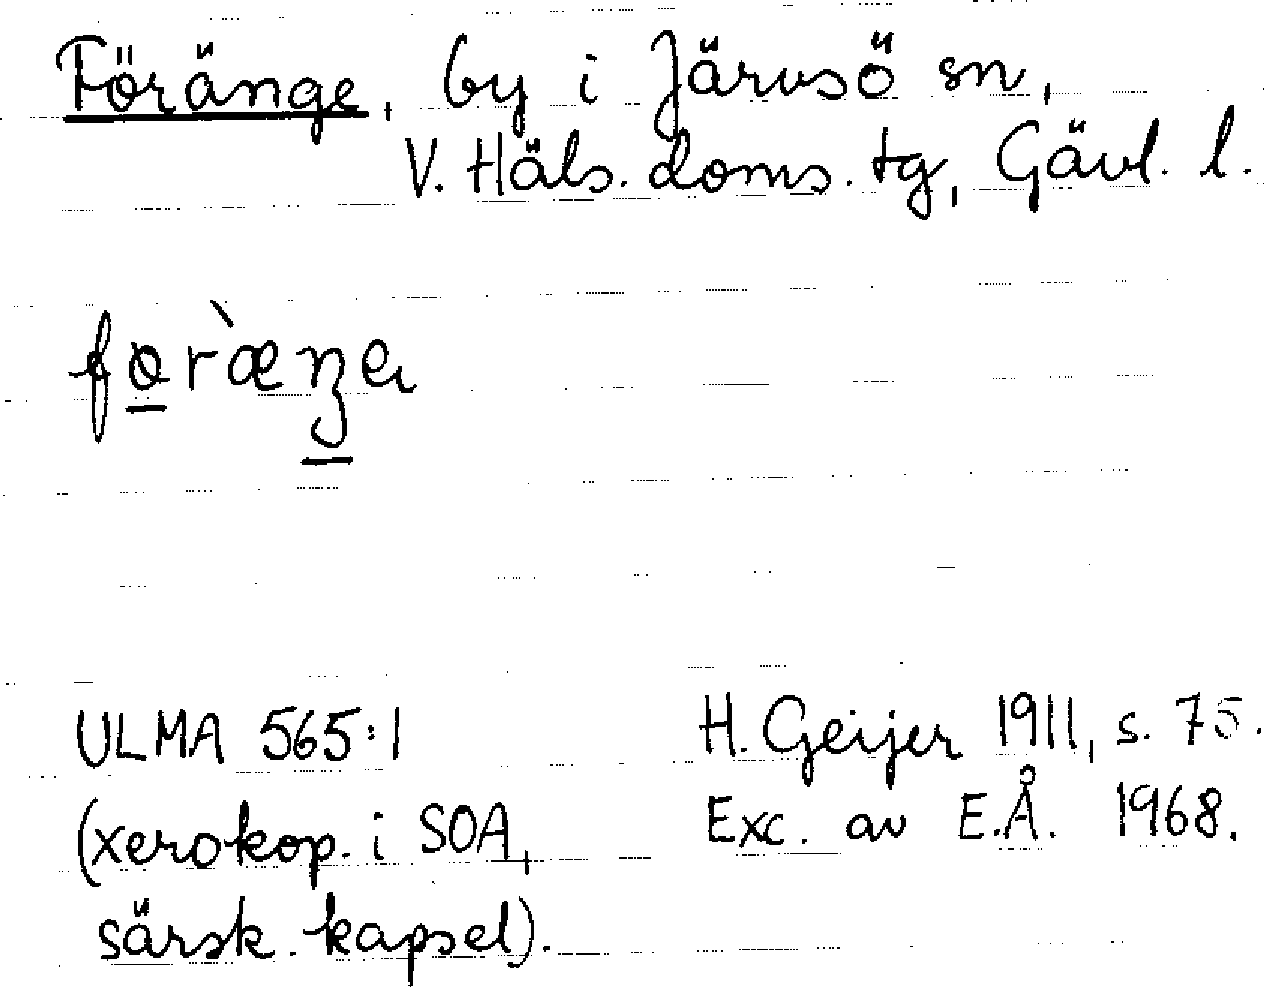 Föränge, by i Järvsö sn,
V. Häls. doms. tg, Gävl. l.
ULMA 565:1
(xerokop. i SOA,
särsk. kapsel).
H. Geijer 1911, s. 75.
Exc. av E.Å. 1968.